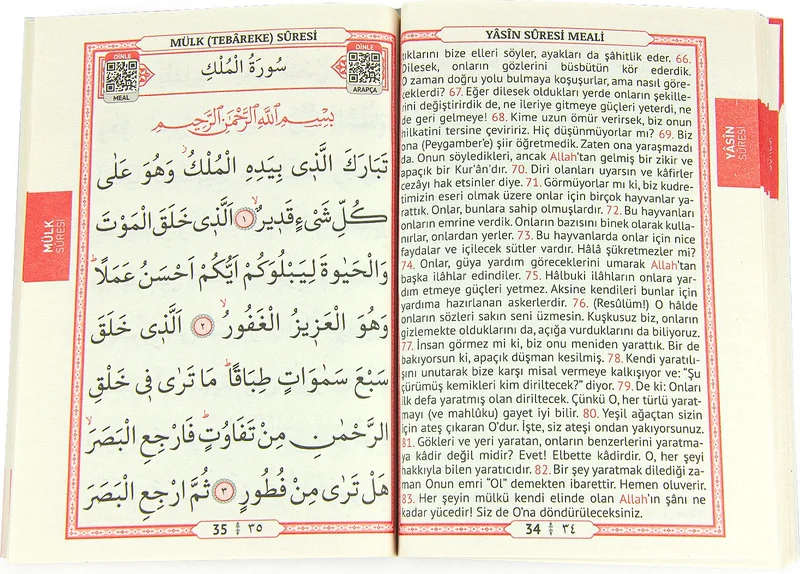 MÜLK (TEBÂREKE) SÛRESİ
DİNLE
MEAL
سُورَةُ الْمُلْكِ
DİNLE
ARAPÇA
بِسْمِ اللّٰهِ الرَّحْمٰنِ الرَّحِيمِ
تَبَارَكَ الَّذٖي بِيَدِهِ الْمُلْكُۘ وَهُوَ عَلٰى
كُلِّ شَيْءٍ قَدٖيرٌۙ ﴿١﴾ اَلَّذٖي خَلَقَ الْمَوْتَ
وَالْحَيٰوةَ لِيَبْلُوَكُمْ اَيُّكُمْ اَحْسَنُ عَمَلًاؕ
وَهُوَ الْعَزٖيزُ الْغَفُورُۙ ﴿٢﴾ اَلَّذٖي خَلَقَ
سَبْعَ سَمٰوَاتٍ طِبَاقًاؕ مَا تَرٰى فٖي خَلْقِ
الرَّحْمٰنِ مِنْ تَفَاوُتٍؕ فَارْجِعِ الْبَصَرَۙ
هَلْ تَرٰى مِنْ فُطُورٍ ﴿٣﴾ ثُمَّ ارْجِعِ الْبَصَرَ
35 ٣٥
MÜLK
SÛRESİ
YÂSÎN SÛRESİ MEALİ
tıklarını bize elleri söyler, ayakları da şâhitlik eder. 66.
Dilesek, onların gözlerini büsbütün kör ederdik.
O zaman doğru yolu bulmaya koşuşurlar, ama nasıl göre-
ceklerdi? 67. Eğer dilesek oldukları yerde onların şekille-
rini değiştirirdik de, ne ileriye gitmeye güçleri yeterdi, ne
de geri gelmeye! 68. Kime uzun ömür verirsek, biz onun
hilkatini tersine çeviririz. Hiç düşünmüyorlar mı? 69. Biz
ona (Peygamber'e) şiir öğretmedik. Zaten ona yaraşmazdı
da. Onun söyledikleri, ancak Allah'tan gelmiş bir zikir ve
apaçık bir Kur'ân'dır. 70. Diri olanları uyarsın ve kâfirler
cezâyı hak etsinler diye. 71. Görmüyorlar mı ki, biz kudre-
timizin eseri olmak üzere onlar için birçok hayvanlar ya-
rattık. Onlar, bunlara sahip olmuşlardır. 72. Bu hayvanları
onların emrine verdik. Onların bazısını binek olarak kulla-
nırlar, onlardan yerler. 73. Bu hayvanlarda onlar için nice
faydalar ve içilecek sütler vardır. Hâlâ şükretmezler mi?
74. Onlar, güya yardım göreceklerini umarak Allah'tan
başka ilâhlar edindiler. 75. Hâlbuki ilâhların onlara yar-
dım etmeye güçleri yetmez. Aksine kendileri bunlar için
yardıma hazırlanan askerlerdir. 76. (Resûlüm!) O hâlde
onların sözleri sakın seni üzmesin. Kuşkusuz biz, onların
gizlemekte olduklarını da, açığa vurduklarını da biliyoruz.
77. İnsan görmez mi ki, biz onu meniden yarattık. Bir de
bakıyorsun ki, apaçık düşman kesilmiş. 78. Kendi yaratılı-
şını unutarak bize karşı misal vermeye kalkışıyor ve: “Şu
çürümüş kemikleri kim diriltecek?” diyor. 79. De ki: Onları
ilk defa yaratmış olan diriltecek. Çünkü O, her türlü yarat-
mayı (ve mahlûku) gayet iyi bilir. 80. Yeşil ağaçtan sizin
için ateş çıkaran O'dur. İşte, siz ateşi ondan yakıyorsunuz.
81. Gökleri ve yeri yaratan, onların benzerlerini yaratma-
ya kâdir değil midir? Evet! Elbette kâdirdir. O, her şeyi
hakkıyla bilen yaratıcıdır. 82. Bir şey yaratmak dilediği za-
man Onun emri “Ol” demekten ibarettir. Hemen oluverir.
83. Her şeyin mülkü kendi elinde olan Allah'ın şânı ne
kadar yücedir! Siz de O'na döndürüleceksiniz.
34 ٣٤
YÂSÎN
SÛRESİ